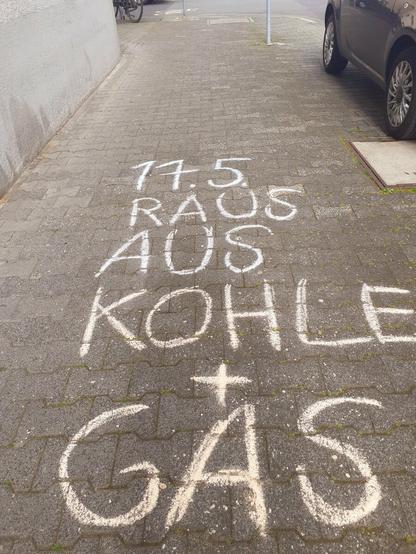 11.5.
RAUS
AUS
KOHLE
+
GAS